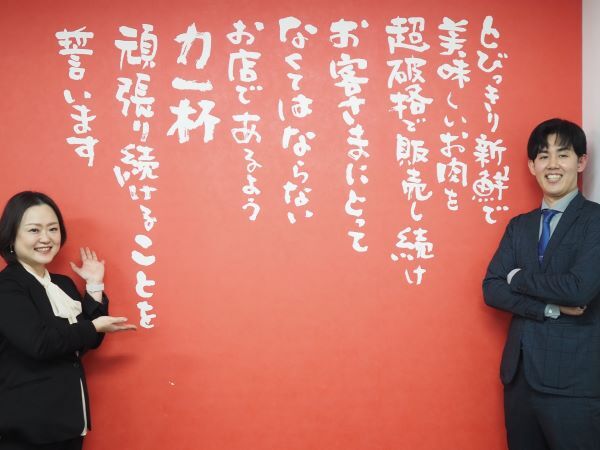 とびっきり新鮮で
美味しいお肉を
超破格で販売し続け
お客さまにとって
なくてはならない
お店であるよう
力一杯
頑張り続けることを
誓います